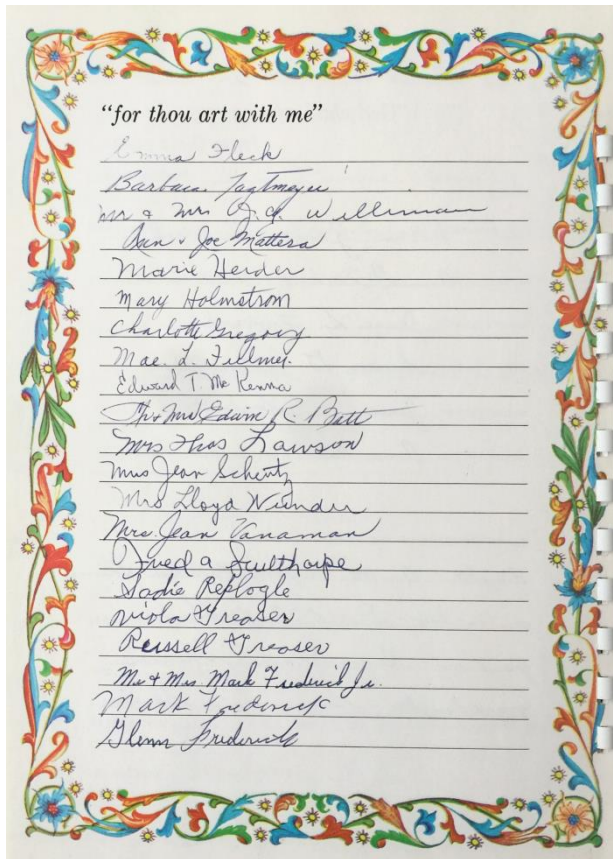 "for thou art with me"
Emma Fleck
Barbara Tagtmeyer
Mr & Mrs Williman
Ann & Joe Mattera
Marie Herder
Mary Holmstrom
Charlotte Gregory
Mae. L. Fillmer.
Edward T. McKenna
Mrs Edwin R. Batt
Mrs Thos Lawson
Mrs Jean Schentz
Mrs Lloyd Wunder
Mrs. Jean Vanaman
Fred a
Sadie Replogle
Viola Greaser
Russell Greaser
Mr & Mrs Mark Frederick Jr.
Mark Frederick
Glenn Frederick